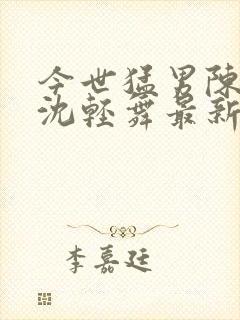 今世猛男陳
沈輕舞最新
李嘉廷